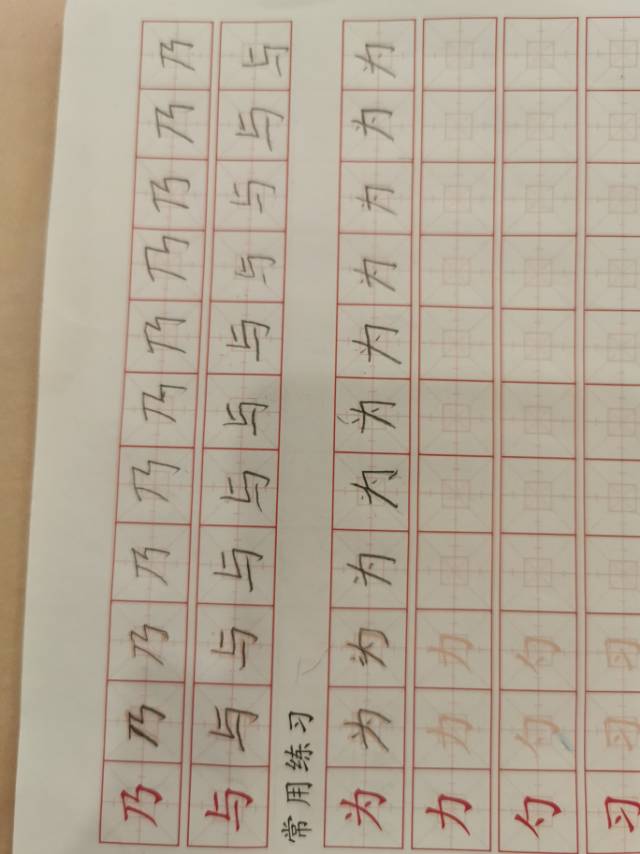 乃乃乃乃乃乃乃乃乃乃乃
与与与与与与与与与与与
常用练习
为为为为为为为为为为为
力力力
勺勺勺
习习习